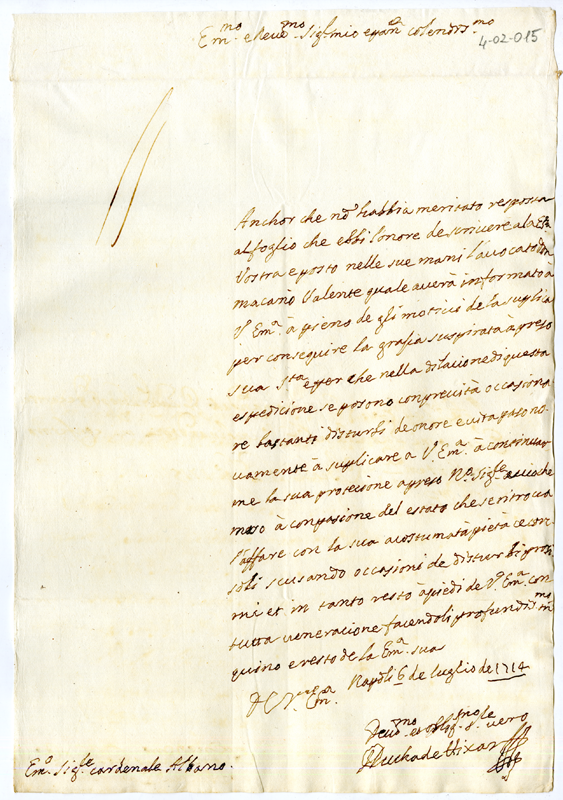 Em.mo e Reu.mo Sig.r mio e pad.e colendis.mo
4-02-015
Anchor che nõ habbia meritato resposta
al foglio che ebbi l'onore de scriuere a la Em.a
Vostra e posto nelle sue mani l'auocato
Valente quale auerà informato à
V. Em.a à pieno de gli motiui de la suplica
per conseguire la grasia suspirata à preso
sua S.ta e per che nella dilacione di questa
espedicione se posono con preuità occasiona
re bastanti disturbi de onore e uita paso no
uamente à suplicare a V. Em.a à continuar
me la sua protecione apreso N.o Sig.re acioche
moso à conpasione del estato che se ritroua
l'affare con la sua acostumata pietà ce con
soli scusando occasioni de disturbi
mi et in tanto resto à piedi de V. Em.a con
tutta ueneracione facendoli profundis.mo in
quino e resto de la Em.a sua
Napoli 6 de luglio de 1714
uero
Duchade Hixar
Em.o Sig.re cardenale Albano.